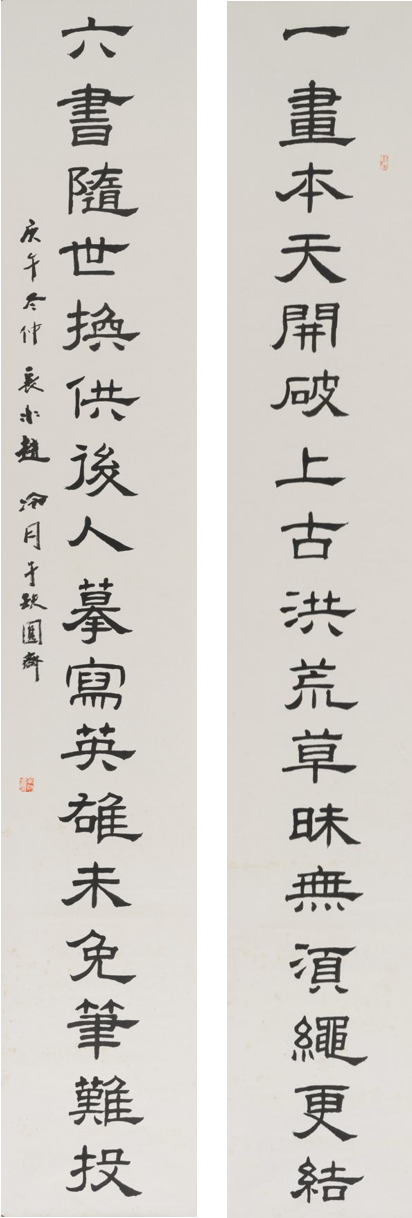 一畫本天開破上古洪荒草昧無須繩更結
六書隨世換供後人摹寫英雄未免筆難投
庚午冬仲 長水趙冷月于缺圓齋